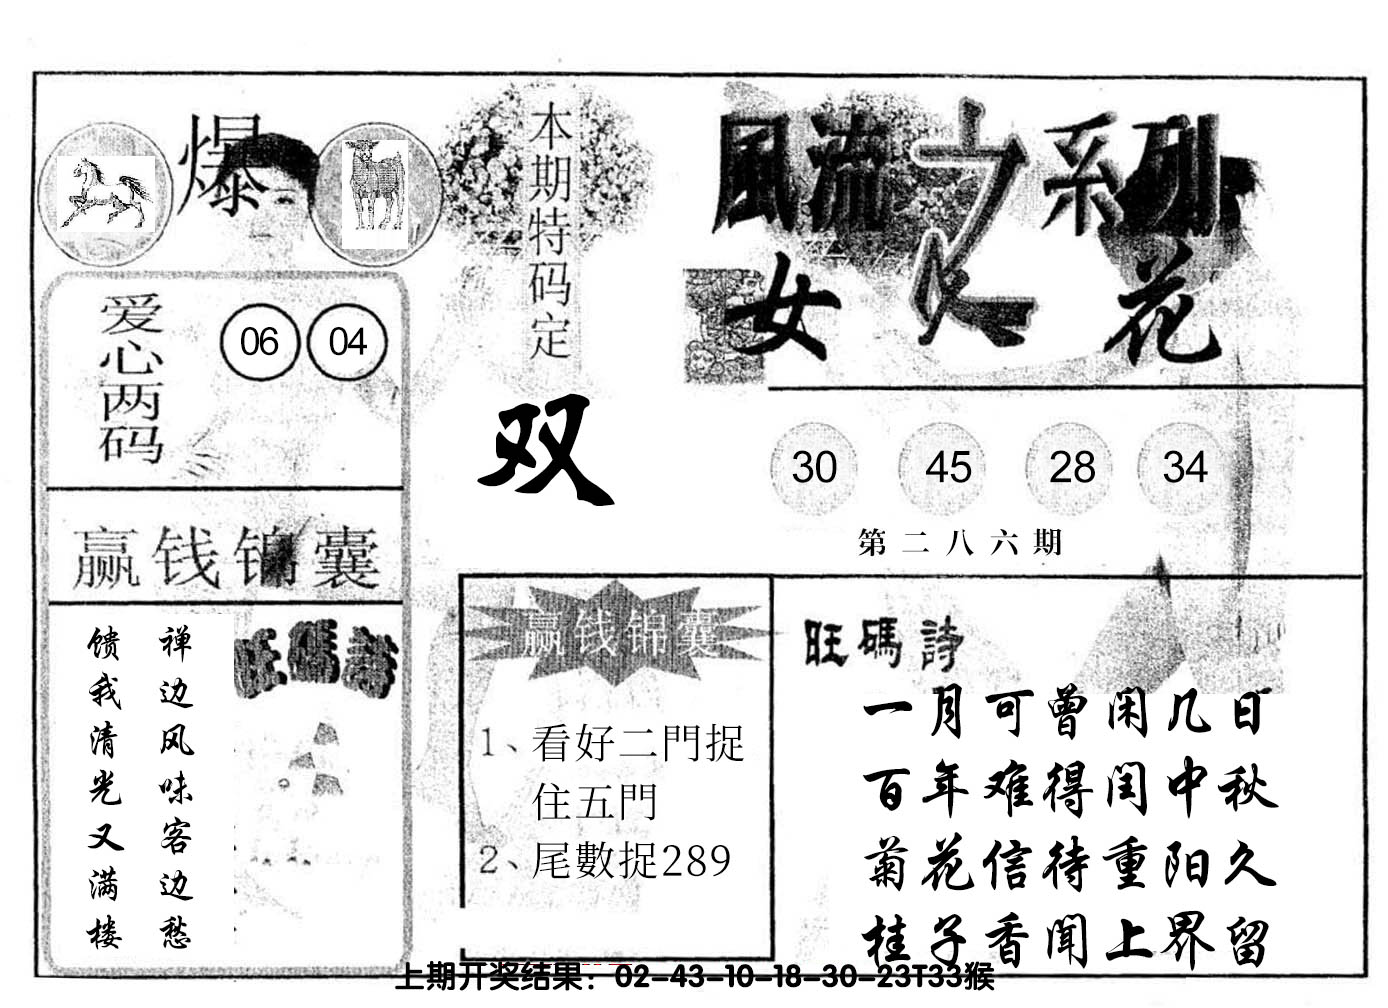 爆
本期特码定
双
風流之系列
女人花
爱心两码
06 04
30 45 28 34
第二八六期
赢钱锦囊
旺碼詩
禅边风味客边愁
馈我清光又满楼
赢钱锦囊
1、看好二門捉
住五門
2、尾數捉289
旺碼詩
一月可曾闲几日
百年难得闰中秋
菊花信待重阳久
桂子香闻上界留
上期开奖结果：02-43-10-18-30-23T33猴